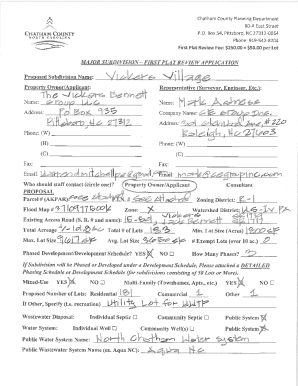 CHATHAM COUNTY
NORTH CAROLINA
Chatham County Planning Department
80-A East Street
P.O. Box 54, Pittsboro, NC 27312-0054
Phone: 919-542-8204
First Plat Review Fee: $250.00 + $50.00 per lot
MAJOR SUBDIVISION – FIRST PLAT REVIEW APPLICATION
Proposed Subdivision Name: Vickers Village
Property Owner/Applicant: Representative (Surveyor, Engineer, Etc.):
The Vickers Bennett
Name: Group LLC Name: Mark Ashness
Address: PO Box 935 Company Name: CE Group Inc.
Pittsboro NC 27312 Address: 301 Glenwood Ave #220
Raleigh, NC 27603
Phone: (W) Phone: (W)
(H) (H)
(C) (C)
Fax: Fax:
Email: Email:
Who should staff contact (circle one): Property Owner/Applicant Consultant
PROPOSAL
Parcel # (AKPAR) See Attached Zoning District: R-1
Flood Map # Zone: X Watershed District
Existing Access Road (S. R. # and name):
Total Acreage Total # of Lots 183 Min. Lot Size (Acres)
Max. Lot Size Avg. Lot Size # Exempt Lots (over 10 ac.) 0
Phased Development/Development Schedule? YES NO How Many Phases? 3
If Subdivision will be Phased or Developed under a Development Schedule, Please attached a DETAILED
Phasing Schedule or Development Schedule (for subdivisions consisting of 50 Lots or More).
Mixed-Use YES NO Multi-Family (Townhomes, Apts., etc.) YES NO
Proposed Number of Lots: Residential 181 Commercial 1 Other 1
If Other, Specify (i.e. recreation) Utility Lot for WWTP
Wastewater Disposal: Individual Septic Community Septic Public System
Water System: Individual Well Community Well(s) Public System
Public Water System Name: North Chatham Water System
Public Wastewater System Name (ex. Aqua NC) Aqua NC